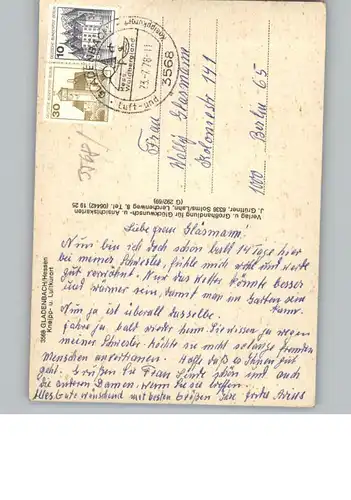 10
30
DEUTSCHE BUNDESPOST BERLIN
GLADENBACH
23.-7.78-11
3568
Luft- und
Frau
Glasmann
Koloniestr 141
1000 Berlin 65
Verlag u. Großhandlung für Glückwunsch- u. Ansichtskarten
J. Grüttner, 6336 Solms/Lahn, Lerchenweg 8, Tel. (06442) 19 25
3568 GLADENBACH/Hessen
Kneipp- u. Luftkurort
Liebe Frau Gläsmann!
Nun bin ich doch schon bald 14 Tage hier
bei meiner Schwester, fühle mich wohl und werde
gut verwöhnt. Nur das Wetter könnte besser
und wärmer sein, damit man im Garten sein
kann.
Nun ja ist überall dasselbe.
Fahre ja bald wieder heim. Sie wissen ja wegen
meiner Schwester möchte sie nicht so lange fremden
Menschen anvertrauen. Hoffe daß es Ihnen gut
geht. Grüßen Sie Frau schön und auch
die anderen Damen, wenn Sie sie treffen.
Alles Gute wünschend mit besten Grüßen Ihre